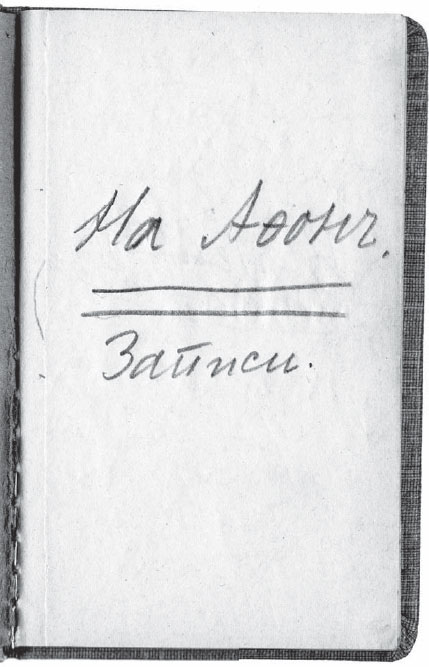 На Аѳонѣ.
Записи.